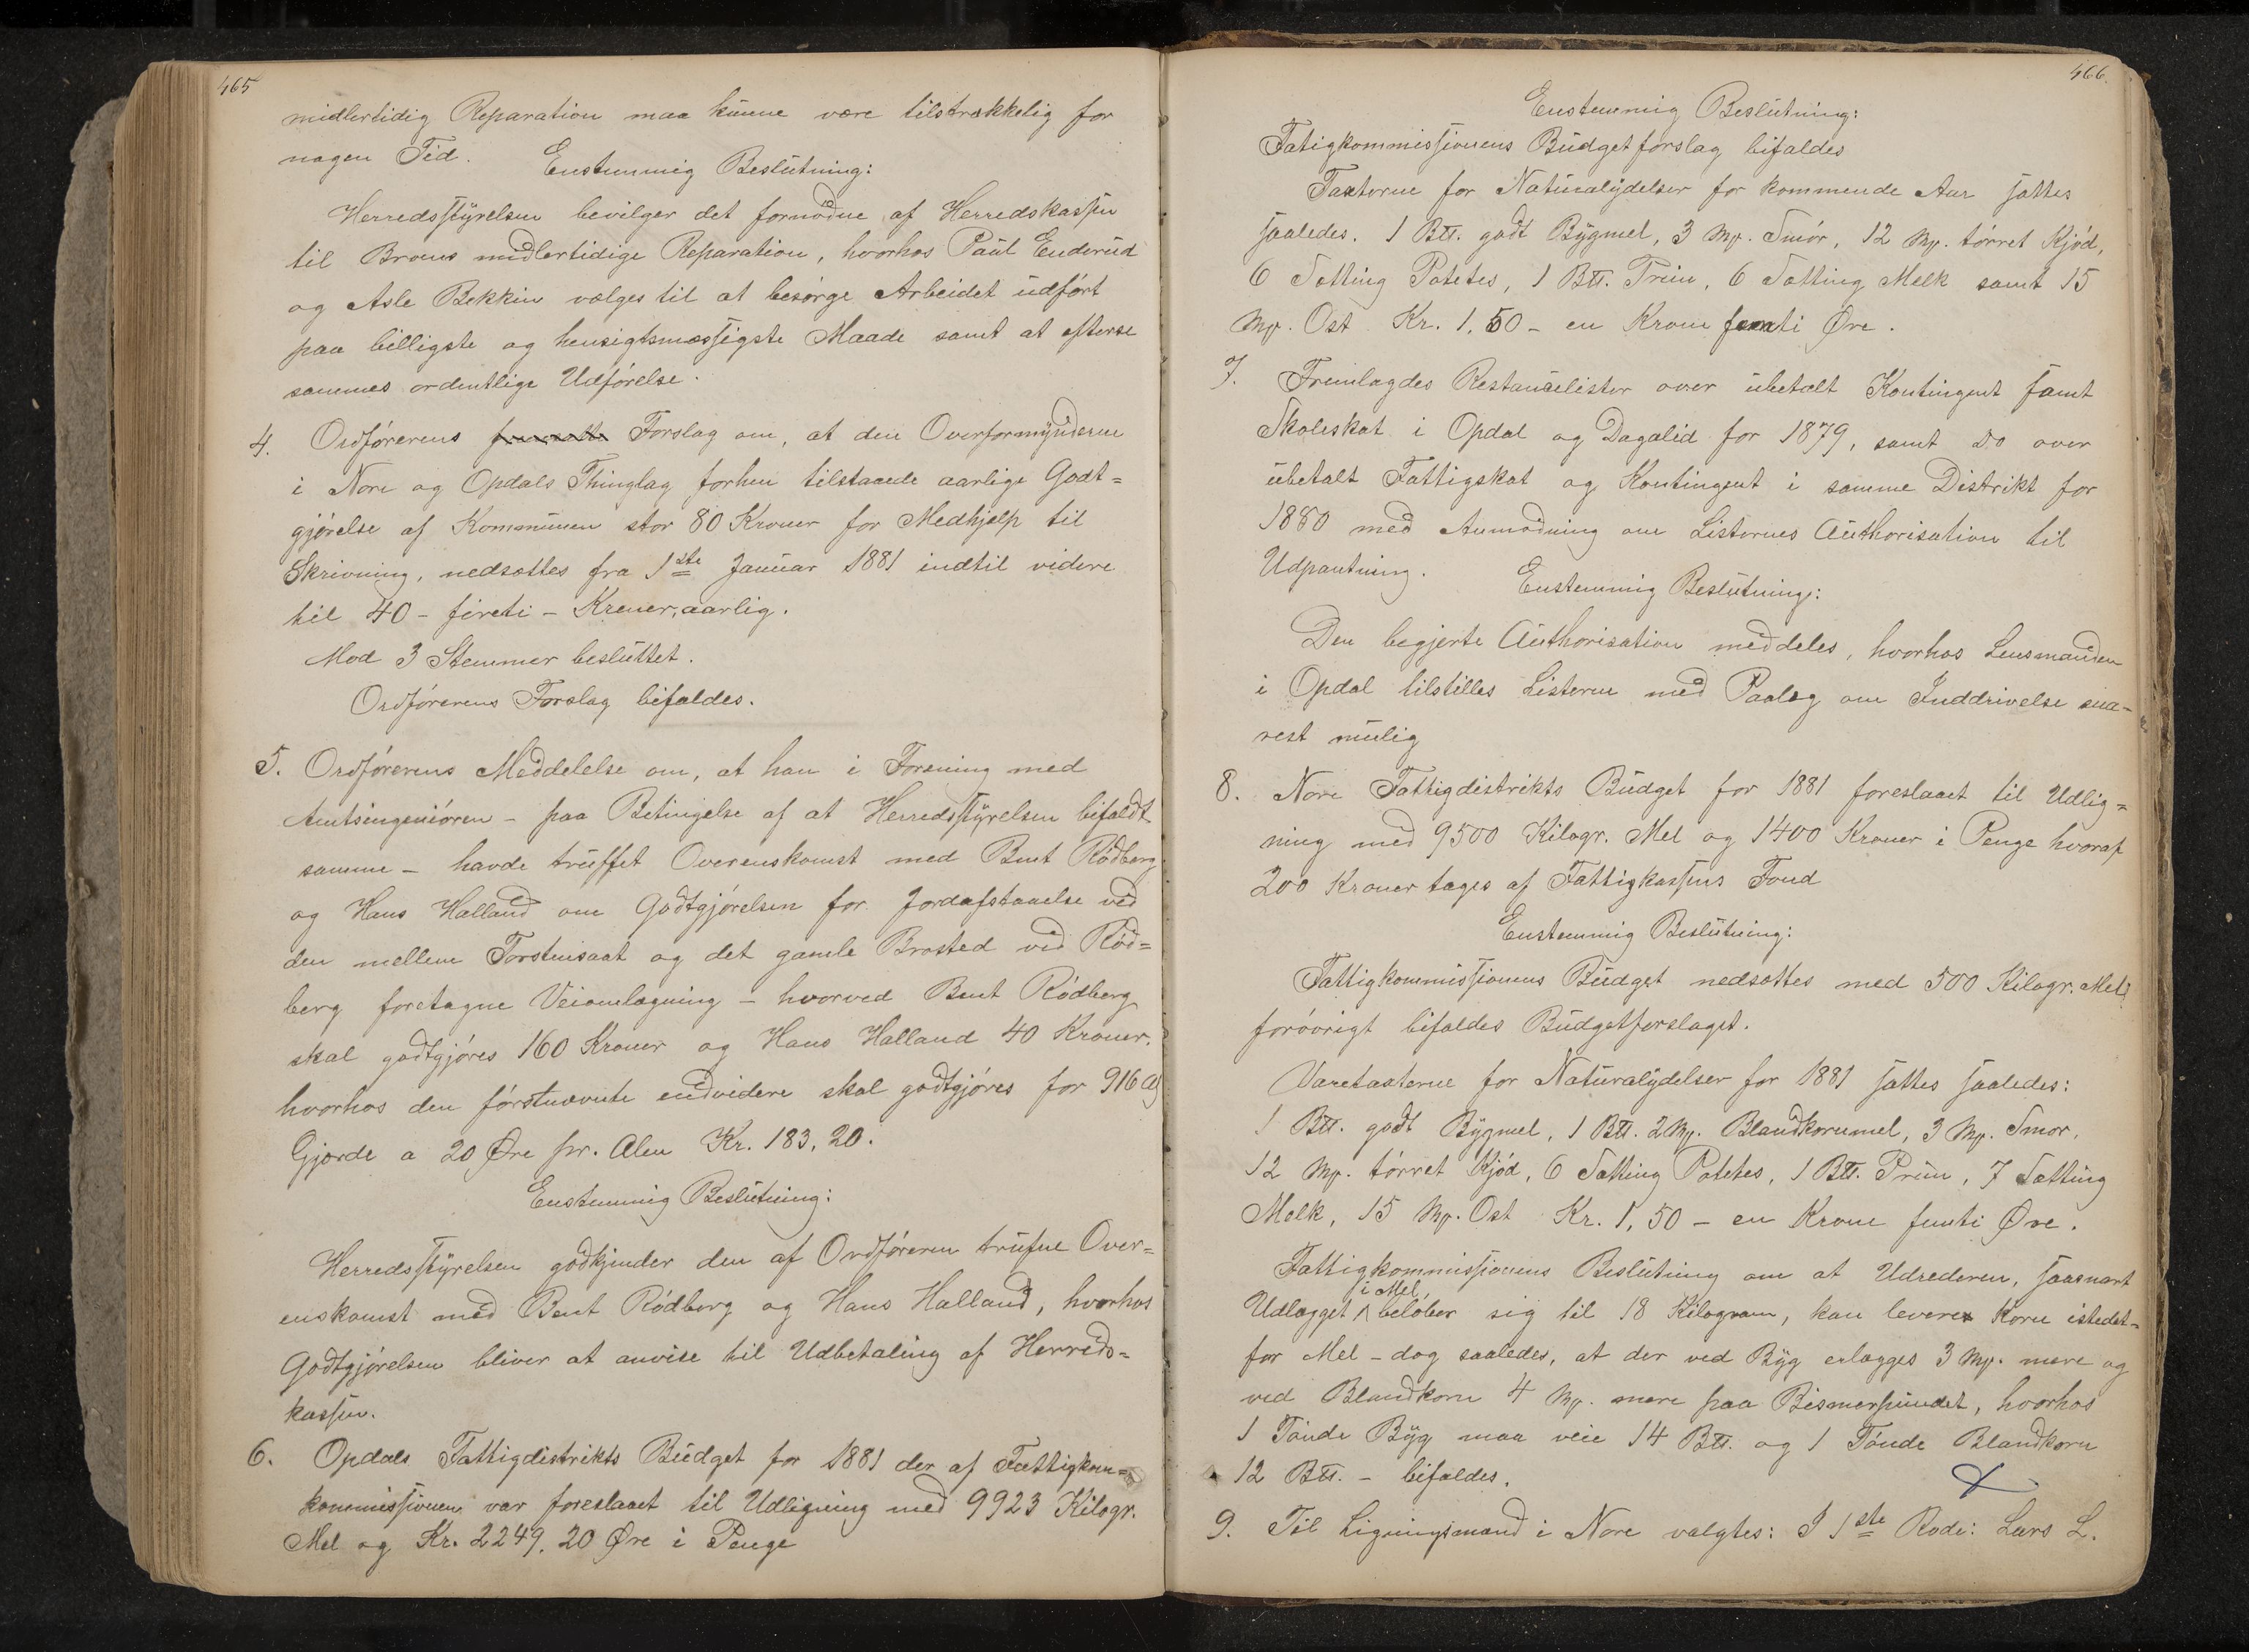 465
midlertidig Reparation maa kunne være tilstrækkelig for
nogen Tid.
Enstemmig Beslutning:
Herredsstyrelsen bevilger det fornødne af Herredskassen
til Broens midlertidige Reparation, hvorhos Paul Enderud
og Asle Bekkin vælges til at besørge Arbeidet udført
paa billigste og hensigtsmæssigste Maade samt at efterse
sammes ordentlige Udførelse.
4. Ordførerens Forslag om, at den Overformynderne
i Nore og Opdals Thinglag forhen tilstaaede aarlige Godt=
gjørelse af Kommunen stor 80 Kroner for Medhjælp til
Skrivning, nedsættes fra 1ste Januar 1881 indtil videre
til 40 - fireti - Kroner, aarlig.
Mod 3 Stemmer besluttet.
Ordførerens Forslag bifaldes.
5. Ordførerens Meddelelse om, at han i Forening med
Amtsingeniøren - paa Betingelse af at Herredsstyrelsen bifaldt
samme - havde truffet Overenskomst med Bent Rødberg
og Hans Halland om Godtgjørelsen for Jordafstaaelse ved
den mellem Torsteinsaat og det gamle Brosted ved Rød=
berg foretagne Veiomlægning - hvorved Bent Rødberg
skal godtgjøres 160 Kroner og Hans Halland 40 Kroner,
hvorhos den førstnævnte endvidere skal godtgjøres for 916 Al
Gjærde a 20 Øre pr. Alen Kr. 183,20.
Enstemmig Beslutning:
Herredsstyrelsen godkjender den af Ordføreren trufne Over=
enskomst med Bent Rødberg og Hans Halland, hvorhos
Godtgjørelsen bliver at anvise til Udbetaling af Herreds=
kassen.
6. Opdals Fattigdistrikts Budget for 1881 der af Fattigkom=
kommissionen var foreslaaet til Udligning med 9923 Kilogr.
Mel og Kr. 2249.20 Øre i Penge
466.
Enstemmig Beslutning:
Fatigkommissionens Budgetforslag bifaldes
Taxterne for Naturalydelser for kommende Aar sættes
saaledes. 1 B℔. godt Bygmel, 3 Mp. Smør, 12 Mp. tørret Kjød,
6 Sætting Potetes, 1 B℔. Prim, 6 Sætting Melk samt 15
Mp. Ost Kr. 1.50 - en Krone femti Øre.
7. Fremlagdes Restancelister over ubetalt Kontingent samt
Skoleskat i Opdal og Dagalid for 1879, samt Do over
ubetalt Fattigskat og Kontingent i samme Distrikt for
1880 med Anmodning om Listernes Authorisation til
Udpantning.
Enstemmig Beslutning:
Den begjerte Authorisation meddeles, hvorhos Lensmanden
i Opdal tilstilles Listerne med Paalæg om Inddrivelse sna=
rest mulig
8. Nore Fattigdistrikts Budget for 1881 foreslaaet til Udlig=
ning med 9500 Kilogr. Mel og 1400 Kroner i Penge hvoraf
200 Kroner tages af Fattigkassens Fond
Enstemmig Beslutning:
Fattigkommissionens Budget nedsættes med 500 Kilogr. Mel
forøvrigt bifaldes Budgetforslaget.
Varetaxterne for Naturalydelser for 1881 sættes saaledes:
1 B℔. godt Bygmel, 1 B℔. 2 Mp. Blandkornmel, 3 Mp. Smør,
12 Mp. tørret Kjød, 6 Sætting Potetes, 1 B℔. Prim, 7 Sætting
Melk, 15 Mp. Ost Kr. 1,50 - en Krone femti Øre.
Fattigkommissionens Beslutning om at Udrederen, saasnart
Udlægget i Mel beløber sig til 18 Kilogram, kan levere Korn istedet=
for Mel - dog saaledes, at der ved Byg erlægges 3 Mp. mere og
ved Blandkorn 4 Mp. mere paa Bismerpundet, hvorhos
1 Tønde Byg maa veie 14 B℔. og 1 Tønde Blandkorn
12 B℔. - bifaldes.
9. Til Ligningsmænd i Nore valgtes: I 1ste Rode: Lars L.